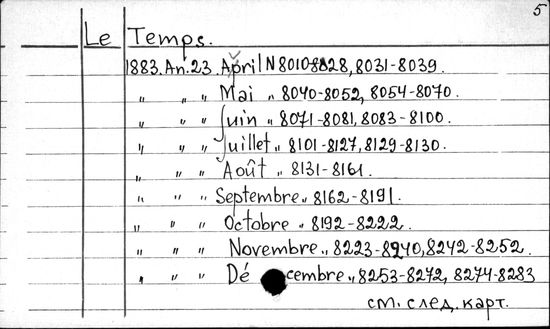 5
Le Temps.
1883. An. 23. April N 8010-8028, 8031-8039.
„ „ „ Mai „ 8040-8052, 8054-8070.
„ „ „ Juin „ 8071-8081, 8083-8100.
„ „ „ Juillet „ 8101-8127, 8129-8130.
„ „ „ Août „ 8131-8161.
„ „ „ Septembre „ 8162-8191.
„ „ „ Octobre „ 8192-8222.
„ „ „ Novembre „ 8223-8240, 8242-8252.
„ „ „ Décembre „ 8253-8272, 8274-8283
см. след. карт.